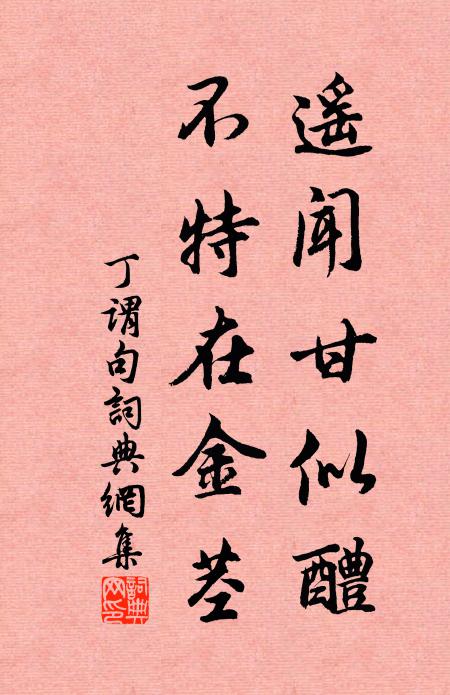 遥闻甘似醴
不特在金茎
丁谓句詞典網集
詞典网印